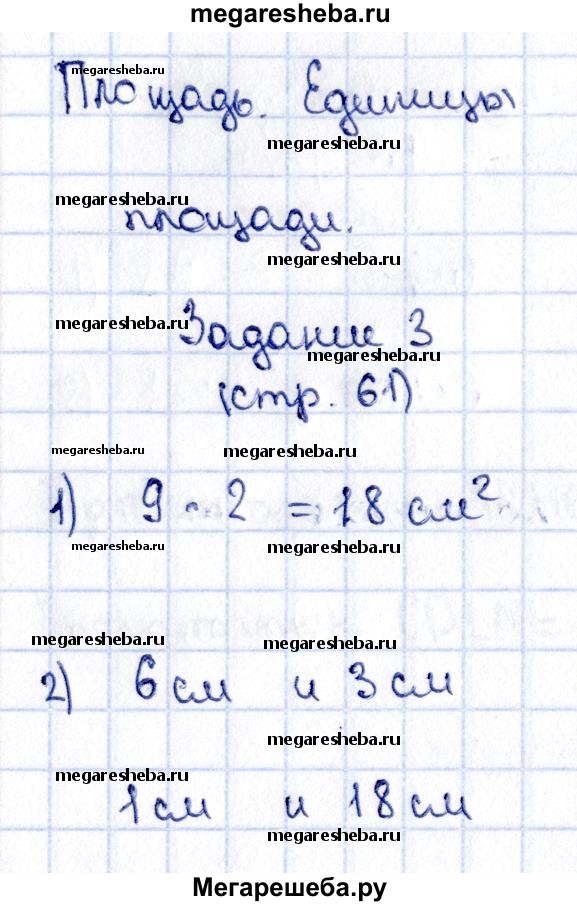 megaresheba.ru
megaresheba.ru
Площадь. Единицы
megaresheba.ru
megaresheba.ru
площади.
megaresheba.ru
megaresheba.ru
Задание 3
megaresheba.ru
(стр. 61)
megaresheba.ru megaresheba.ru
1) 9 · 2 = 18 см²
megaresheba.ru megaresheba.ru
megaresheba.ru megaresheba.ru
2) 6 см и 3 см
megaresheba.ru
megaresheba.ru
1 см и 18 см
megaresheba.ru
Мегарешеба.ру